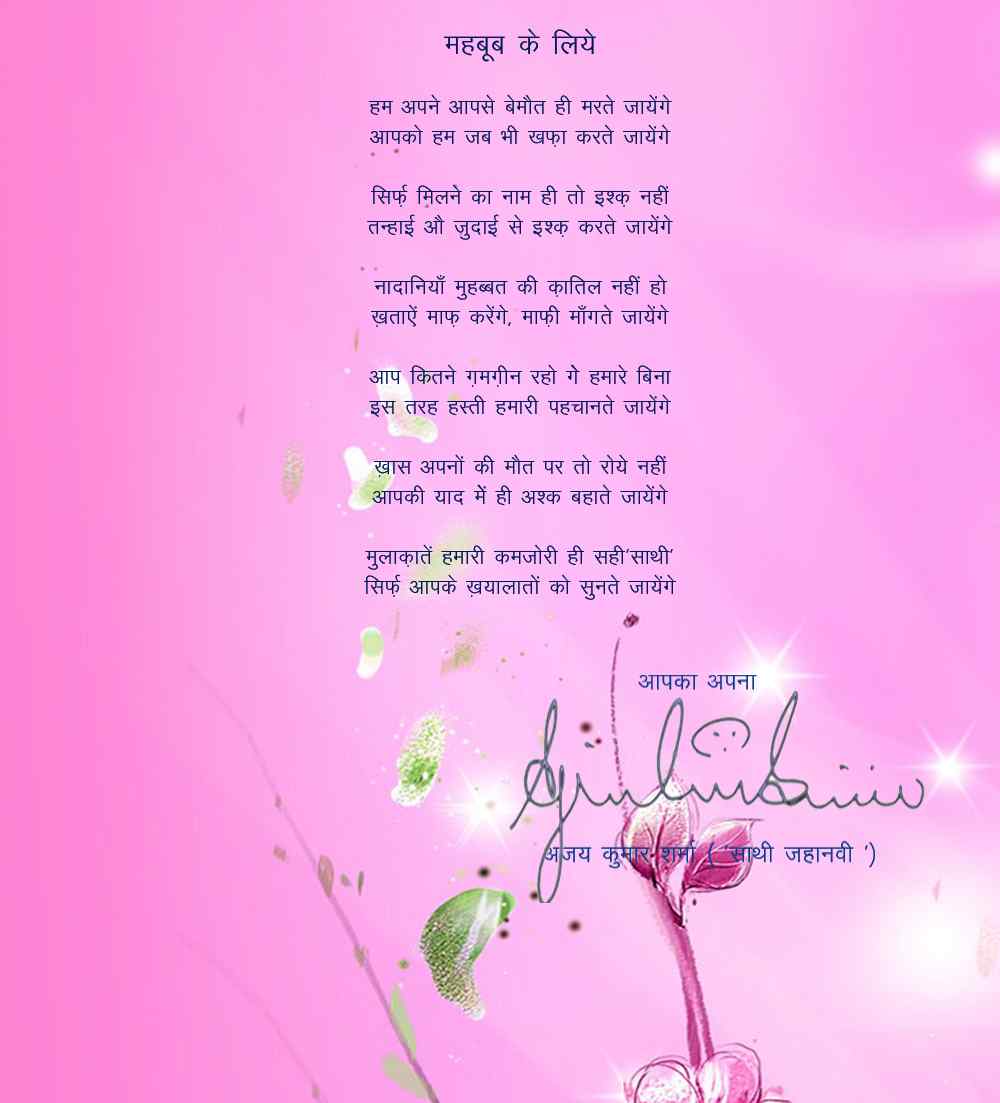 महबूब के लिये
हम अपने आपसे बेमौत ही मरते जायेंगे
आपको हम जब भी खफ़ा करते जायेंगे
सिर्फ़ मिलने का नाम ही तो इश्क़ नहीं
तन्हाई औ ज़ुदाई से इश्क़ करते जायेंगे
नादानियाँ मुहब्बत की क़ातिल नहीं हो
ख़ताऐं माफ़ करेंगे, माफ़ी माँगते जायेंगे
आप कितने ग़मग़ीन रहो गे हमारे बिना
इस तरह हस्ती हमारी पहचानते जायेंगे
ख़ास अपनों की मौत पर तो रोये नहीं
आपकी याद में ही अश्क बहाते जायेंगे
मुलाक़ातें हमारी कमजोरी ही सही'साथी'
सिर्फ़ आपके ख़यालातों को सुनते जायेंगे
आपका अपना
अजय कुमार शर्मा ( 'साथी जहानवी ')